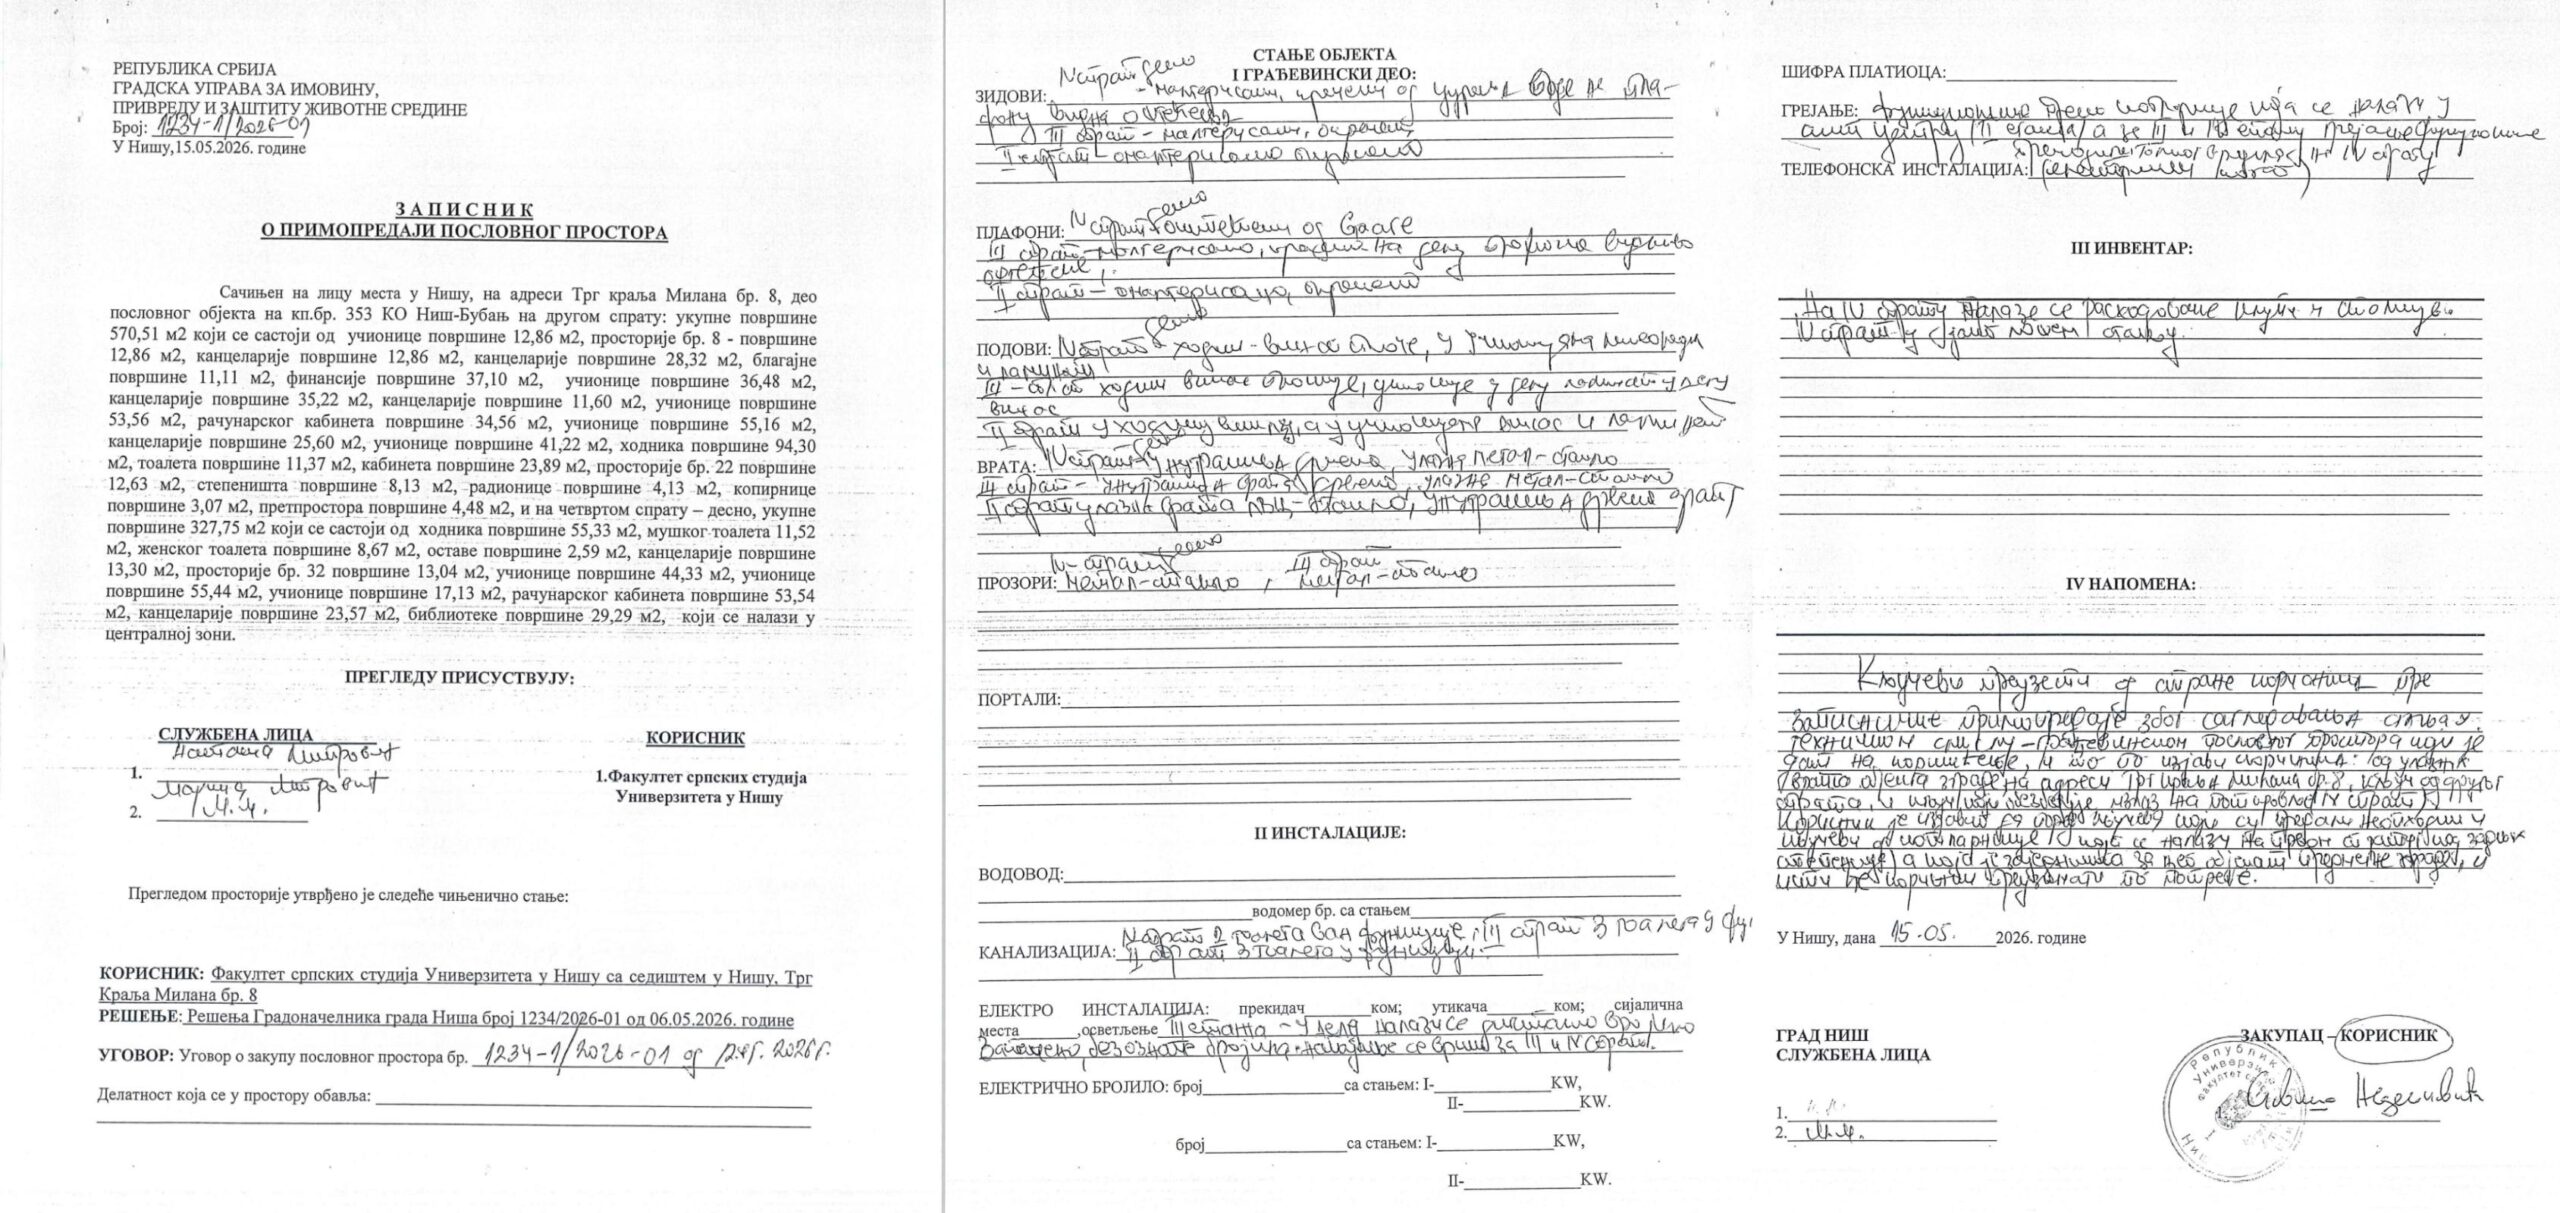 РЕПУБЛИКА СРБИЈА
ГРАДСКА УПРАВА ЗА ИМОВИНУ,
ПРИВРЕДУ И ЗАШТИТУ ЖИВОТНЕ СРЕДИНЕ
Број: 1234-1/2026-01
У Нишу,15.05.2026. године
З А П И С Н И К
О ПРИМОПРЕДАЈИ ПОСЛОВНОГ ПРОСТОРА
Сачињен на лицу места у Нишу, на адреси Трг краља Милана бр. 8, део
пословног објекта на кп.бр. 353 КО Ниш-Бубањ на другом спрату: укупне површине
570,51 м2 који се састоји од учионице површине 12,86 м2, просторије бр. 8 - површине
12,86 м2, канцеларије површине 12,86 м2, канцеларије површине 28,32 м2, благајне
површине 11,11 м2, финансије површине 37,10 м2, учионице површине 36,48 м2,
канцеларије површине 35,22 м2, канцеларије површине 11,60 м2, учионице површине
53,56 м2, рачунарског кабинета површине 34,56 м2, учионице површине 55,16 м2,
канцеларије површине 25,60 м2, учионице површине 41,22 м2, ходника површине 94,30
м2, тоалета површине 11,37 м2, кабинета површине 23,89 м2, просторије бр. 22 површине
12,63 м2, степеништа површине 8,13 м2, радионице површине 4,13 м2, копирнице
површине 3,07 м2, претпростора површине 4,48 м2, и на четвртом спрату – десно, укупне
површине 327,75 м2 који се састоји од ходника површине 55,33 м2, мушког тоалета 11,52
м2, женског тоалета површине 8,67 м2, оставе површине 2,59 м2, канцеларије површине
13,30 м2, просторије бр. 32 површине 13,04 м2, учионице површине 44,33 м2, учионице
површине 55,44 м2, учионице површине 17,13 м2, рачунарског кабинета површине 53,54
м2, канцеларије површине 23,57 м2, библиотеке површине 29,29 м2, који се налази у
централној зони.
ПРЕГЛЕДУ ПРИСУСТВУЈУ:
СЛУЖБЕНА ЛИЦА
КОРИСНИК
1. Наташа Митровић
2. Марија Митровић
М.М.
1.Факултет српских студија
Универзитета у Нишу
Прегледом просторије утврђено је следеће чињенично стање:
КОРИСНИК: Факултет српских студија Универзитета у Нишу са седиштем у Нишу, Трг
Краља Милана бр. 8
РЕШЕЊЕ: Решења Градоначелника града Ниша број 1234/2026-01 од 06.05.2026. године
УГОВОР: Уговор о закупу пословног простора бр. 1234-1/2026-01 од 2026 г.
Делатност која се у простору обавља:
СТАЊЕ ОБЈЕКТА
I ГРАЂЕВИНСКИ ДЕО:
IV спрат десно
ЗИДОВИ: - малтерисани, кречени од цурења воде на пла-
фону видна оштећења
III спрат - малтерисани, окречени
II спрат - омалтерисано окречено
ПЛАФОНИ: IV спрат десно оштећени од влаге
III спрат - малтерисано, на делу видљиво
оштећење
II спрат - омалтерисано, окречено
ПОДОВИ: IV спрат десно - ходник - винас плоче, у учионицама
и ламинат
III - спрат ходник винас учионице у делу ламинат у делу
винас
II спрат у ходнику а у учионицама винас и ламинат
ВРАТА: IV спрат десно унутрашња дрвена, улазна метал-стакло
III спрат - унутрашња врата дрвена, улазна метал-стакло
II спрат улазна врата стакло, унутрашња дрвена врата
IV спрат десно III спрат
ПРОЗОРИ: метал-стакло, метал-стакло
ПОРТАЛИ:
II ИНСТАЛАЦИЈЕ:
ВОДОВОД:
водомер бр. са стањем
КАНАЛИЗАЦИЈА: IV спрат 2 тоалета ван функције, III спрат 3 тоалета у
II спрат 3 тоалета у функцији
ЕЛЕКТРО ИНСТАЛАЦИЈА: прекидач ком; утикача ком; сијалична
места ,осветљење III етажа - налази се бројило
без ознаке бројила. се врши за III и IV спрат.
ЕЛЕКТРИЧНО БРОЈИЛО: број са стањем: I- KW,
II- KW.
број са стањем: I- KW,
II- KW.
ШИФРА ПЛАТИОЦА:
ГРЕЈАЊЕ: функционише која се налази у
(II етажа) а за III и IV етажу грејање функционише
на IV спрату
ТЕЛЕФОНСКА ИНСТАЛАЦИЈА:
III ИНВЕНТАР:
На IV спрату налазе се расходоване клупе и столице
IV спрат у лошем стању.
IV НАПОМЕНА:
Кључеви преузети од стране корисника пре
записничке примопредаје због сагледавања стања у
техничком смислу - грађевинском пословног простора који је
дат на коришћење, и то по изјави корисника: од улазних
врата објекта зграде на адреси Трг краља Милана бр. 8, кључ од другог
спрата, и на IV спрат
Корисник је изјавио да поред кључева који су предати неопходни и
кључеви од које се налазе на
а која је заједничка за цео објекат зграде, и
исти ће корисник преузимати по потреби.
У Нишу, дана 15.05. 2026. године
ГРАД НИШ
СЛУЖБЕНА ЛИЦА
ЗАКУПАЦ – КОРИСНИК
1.
2. М.М.